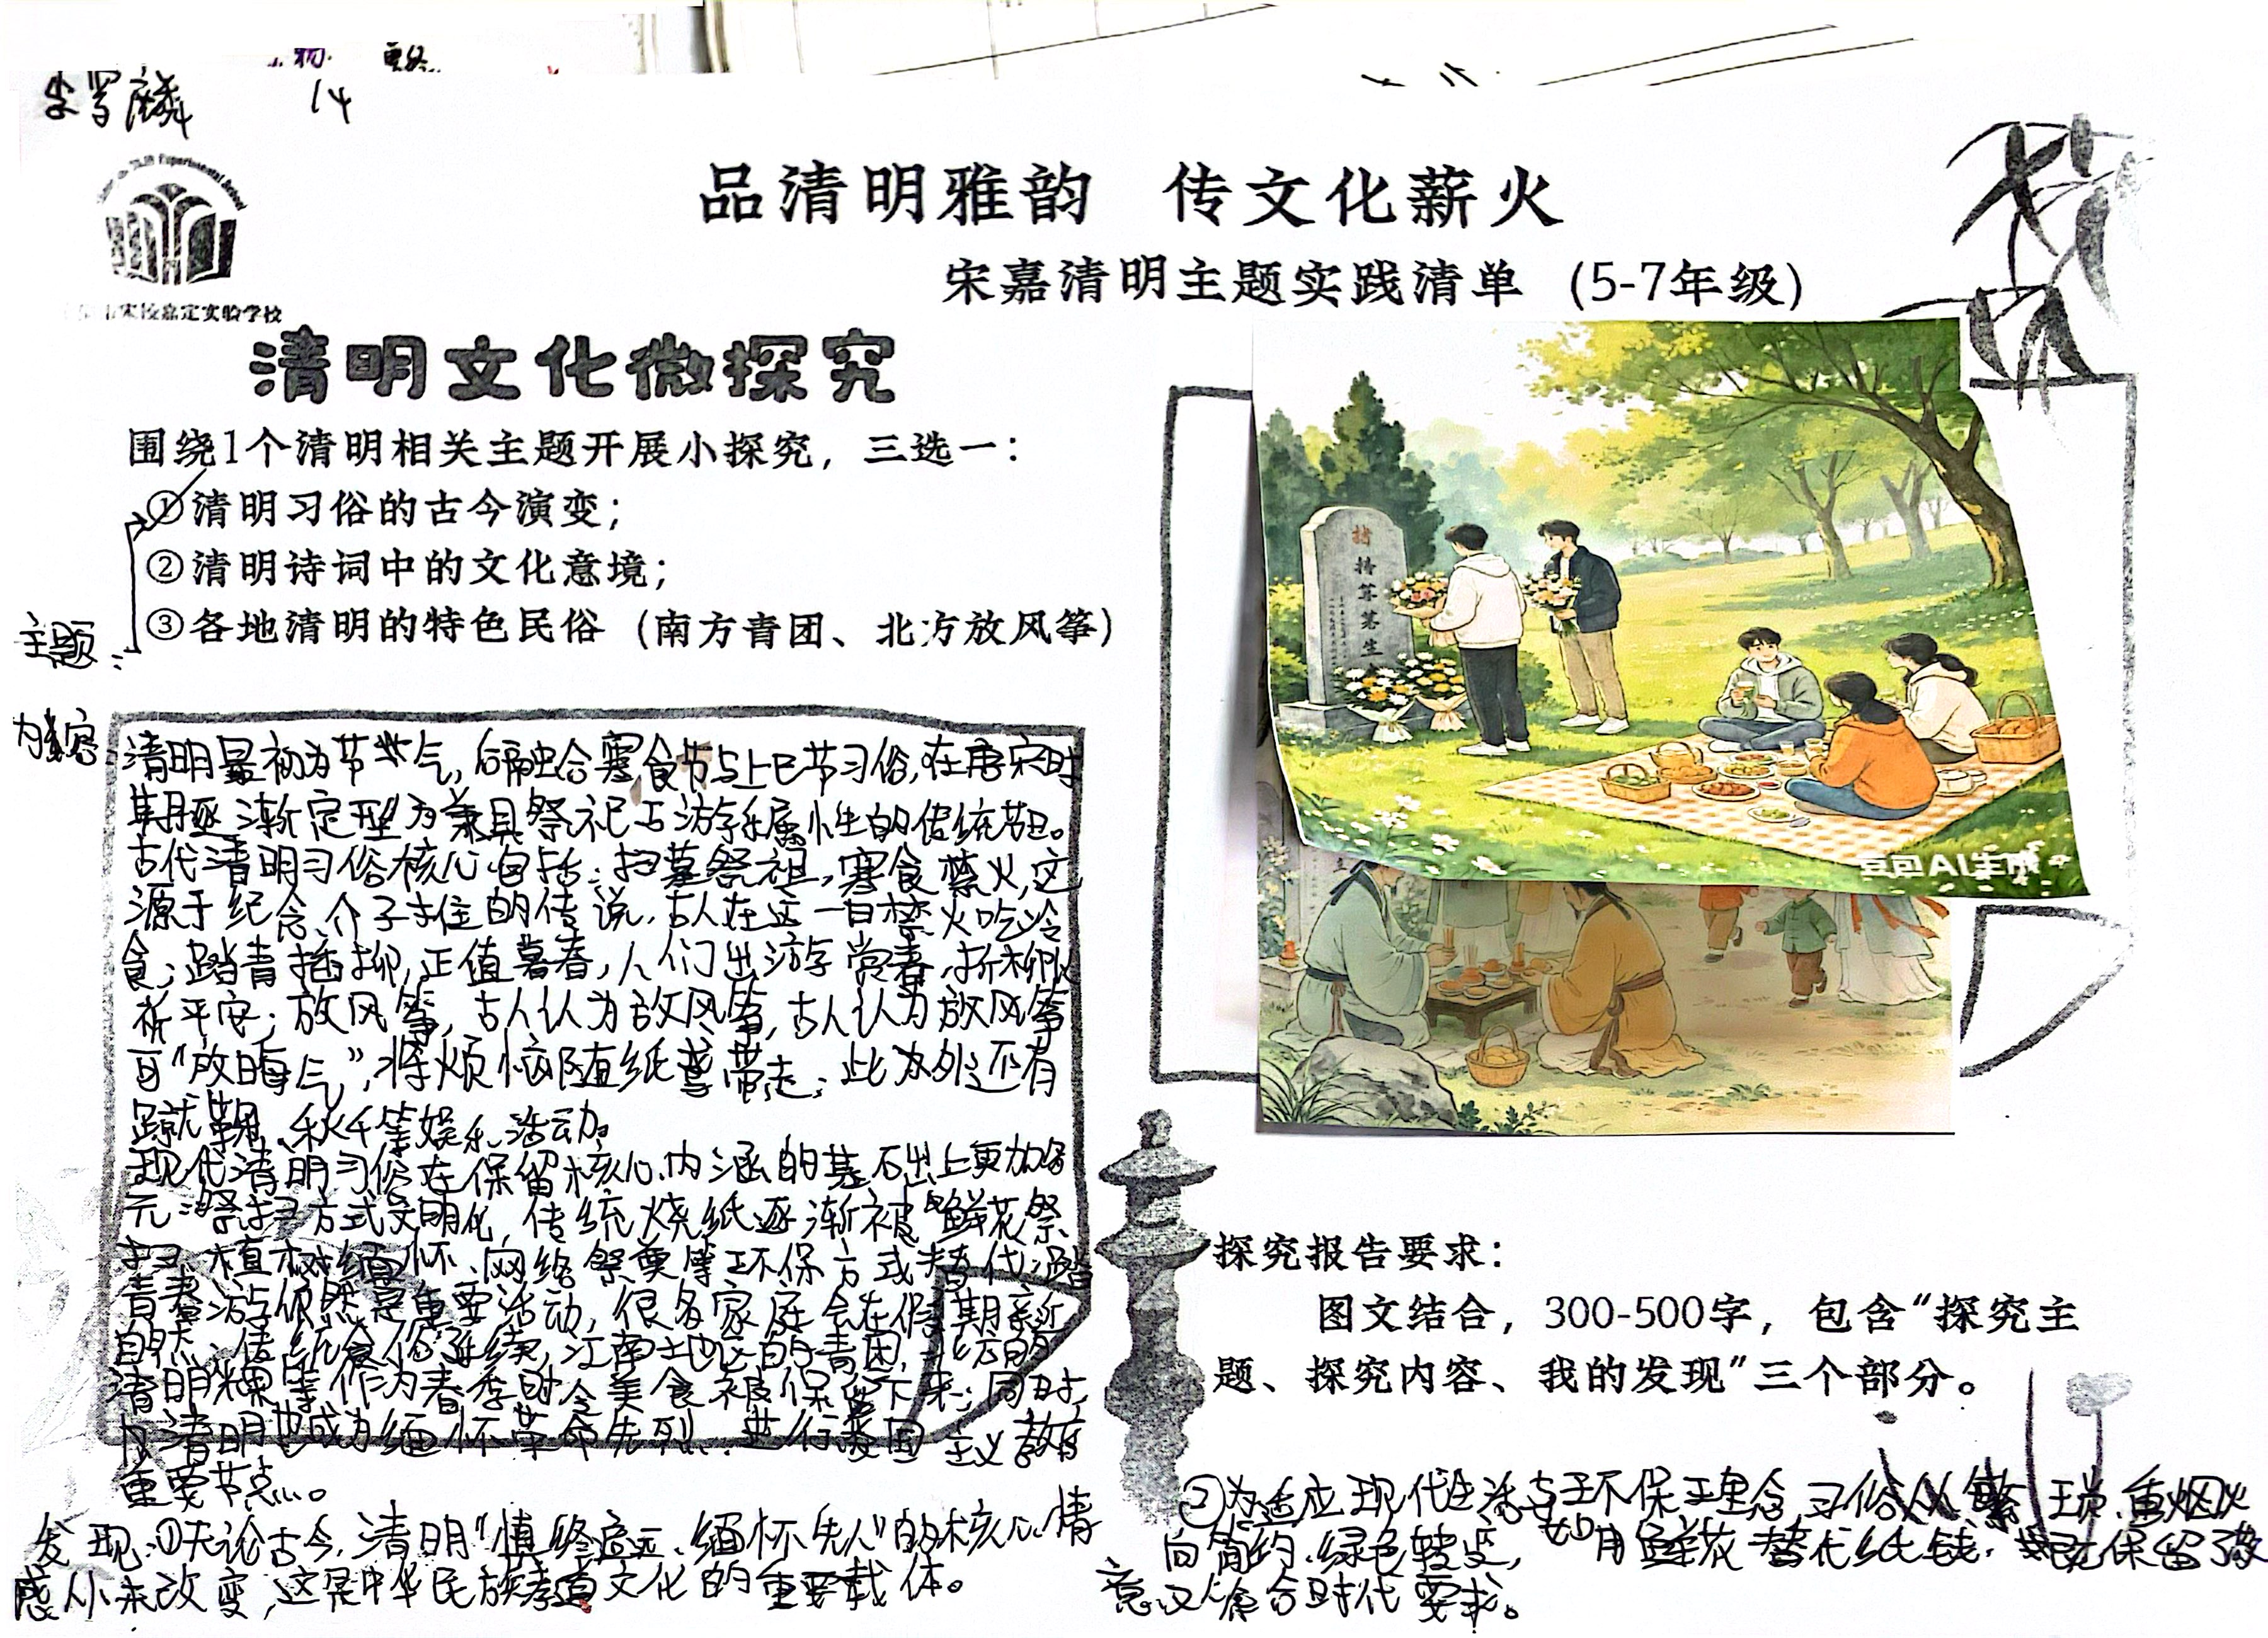 14
品清明雅韵 传文化薪火
宋嘉清明主题实践清单 (5-7年级)
嘉定实验学校
清明文化微探究
围绕1个清明相关主题开展小探究，三选一：
①清明习俗的古今演变；
②清明诗词中的文化意境；
③各地清明的特色民俗（南方青团、北方放风筝）
主题：
内容：
清明最初为节气，后融合寒食节与上巳节习俗，在唐宋时
期逐渐定型为兼具祭祀与游乐属性的传统节日。
古代清明习俗核心包括：扫墓祭祖，寒食禁火，这
源于纪念介子推的传说，古人在这一日禁火吃冷
食；踏青插柳，正值暮春，人们出游赏春，折柳
祈平安；放风筝，古人认为放风筝，古人认为放风筝
可“放晦气”，将烦恼随纸鸢带走；此外还有
蹴鞠、秋千等娱乐活动。
现代清明习俗在保留核心内涵的基础上更加多
元：祭扫方式文明化，传统烧纸逐渐被“鲜花祭
扫、植树缅怀、网络祭奠等环保方式替代；踏
青春游依然是重要活动，很多家庭会在假期亲近
自然；传统食俗延续，江南地区的青团，北方的
清明粿等作为春季时令美食被保留下来；同时，
清明也成为缅怀革命先烈、进行爱国主义教育
重要节点。
发现：①无论古今，清明“慎终追远、缅怀先人”的核心情
感从未改变，这是中华民族孝道文化的重要载体。
豆包AI生成
探究报告要求：
图文结合，300-500字，包含“探究主
题、探究内容、我的发现”三个部分。
②为适应现代生活与环保理念，习俗从繁琐、重烟火
向简约、绿色转变，如用鲜花替代纸钱，既保留了
意义又符合时代要求。